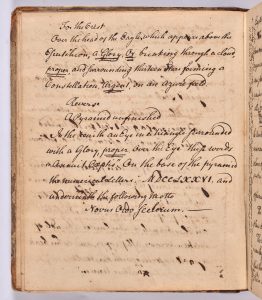 For the Crest
Over the head of the Eagle, which appears above the
Escutcheon, A Glory, Or, breaking through a Cloud,
proper and surrounding thirteen Stars forming a
Constellation, Argent, on an azure field
Reverse
A Pyramid unfinished
In the zenith an Eye in a triangle surrounded
with a Glory proper. Over the Eye these words
"Annuit Coeptis." On the base of the pyramid
the numerical letters MDCCLXXVI. and
underneath the following motto
Novus Ordo Seclorum.